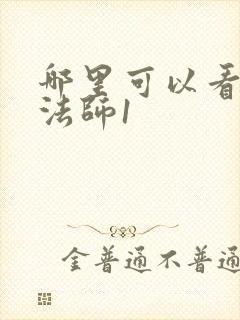 哪里可以看
法师1
金普通不普通